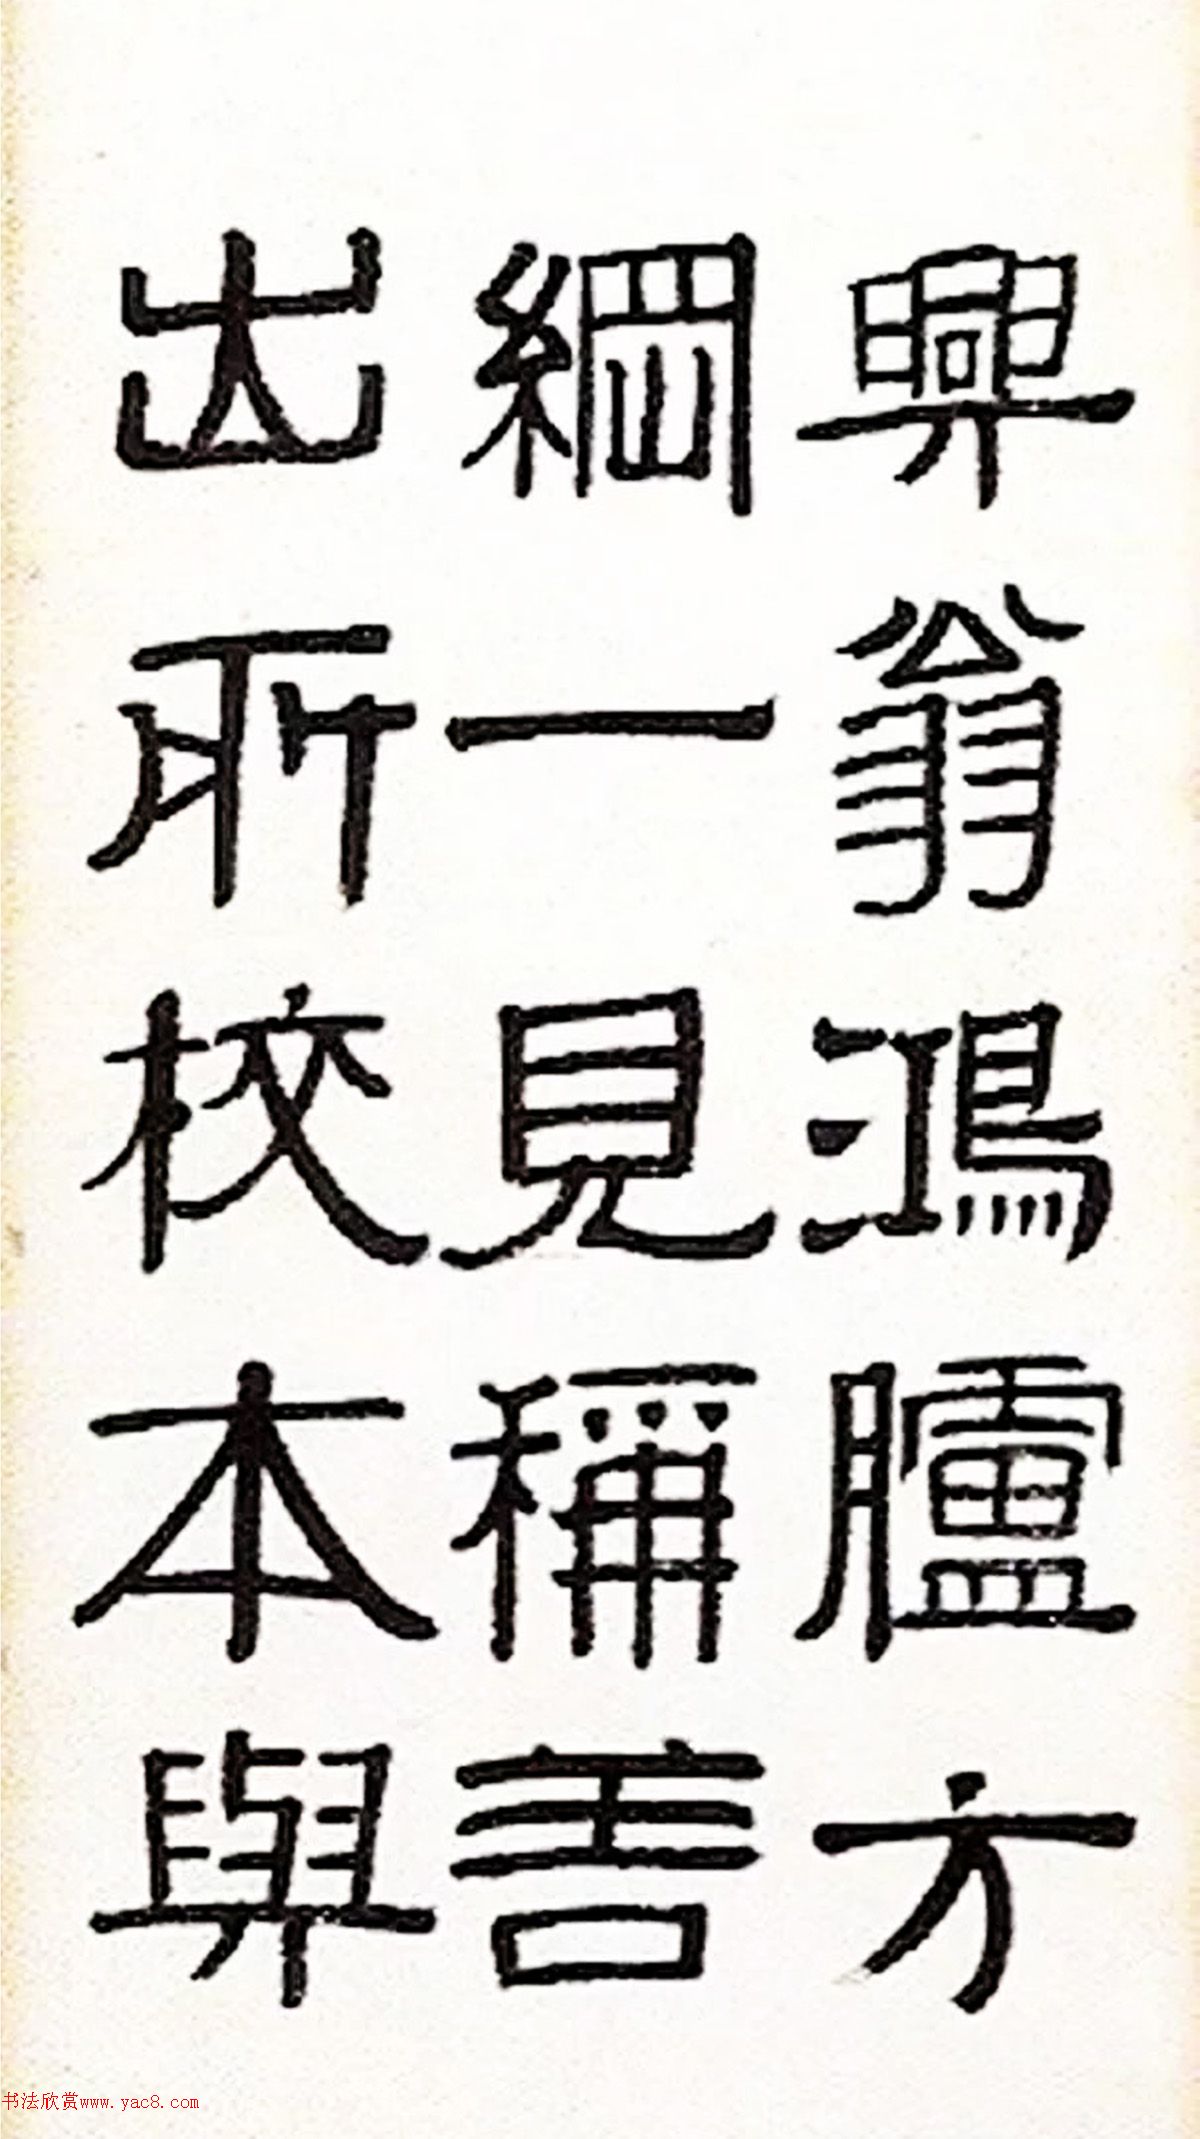 興翁鴻臚方
綱一見稱善
出所校本與
书法欣赏www.yac8.com